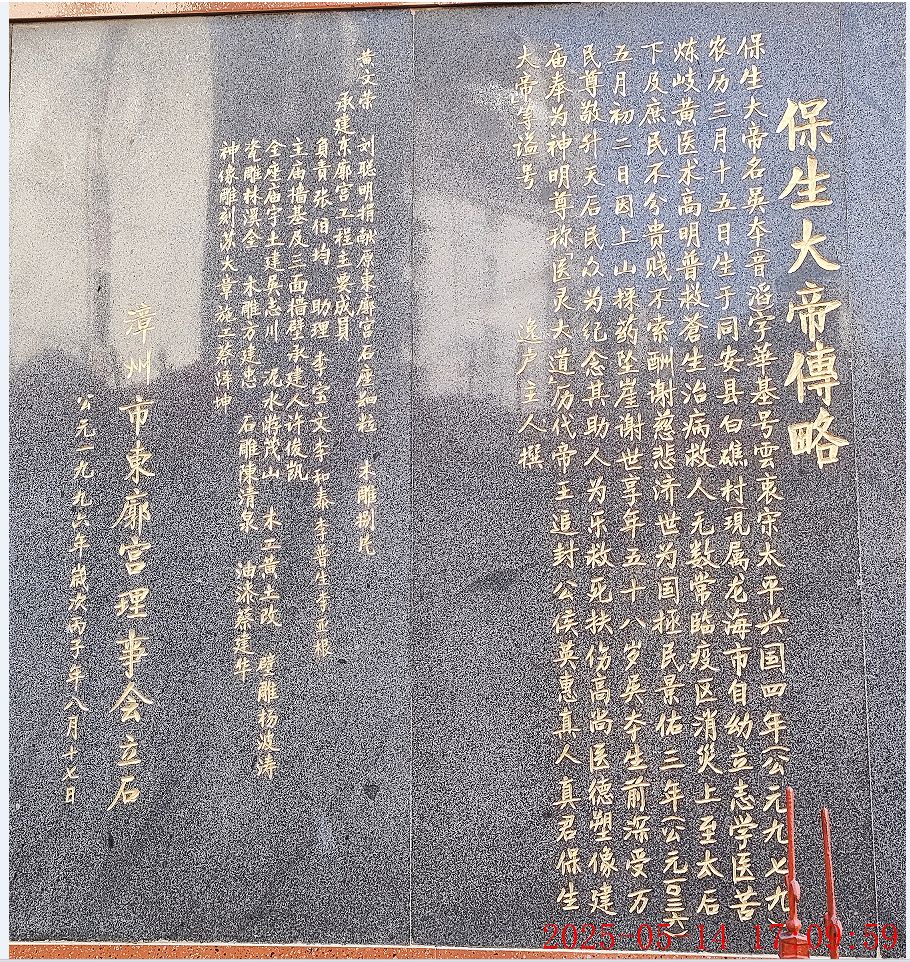 保生大帝傳略
保生大帝名吳夲(音滔)字華基号雲衷宋太平兴国四年(公元九七九)
农历三月十五日生于同安县白礁村(現属龙海市)自幼立志学医苦
炼岐黄医术高明普救苍生治病救人无数常临疫区消災上至太后
下及庶民不分贵贱不索酬谢慈悲济世为国拯民景佑三年(公元一〇三六)
五月初二日因上山採药坠崖谢世享年五十八岁吳夲生前深受万
民尊敬升天后民众为纪念其助人为乐救死扶伤高尚医德塑像建
庙奉为神明尊称「医灵大道」历代帝王追封公侯英惠真人真君保生
大帝等谥号 逸庐主人撰
黄文荣 刘聪明捐献原東廓宫石座和柱 木雕捌片
承建东廓宫工程主要成員
負責张伯均 助理 李宝文李和泰李普生李亚根
主庙墙基及三面墙壁承建人许俊凯
全座庙宇土建吳志川 泥水蒋茂山 木工黄土改 壁雕杨波涛
瓷雕林漢全 木雕方建忠 石雕陳清泉 油漆蔡建华
神像雕刻苏大章施工蔡泽坤
漳州市東廓宫理事会立石
公元一九九六年歲次丙子年八月十七日
2025-05-14 17:09:59